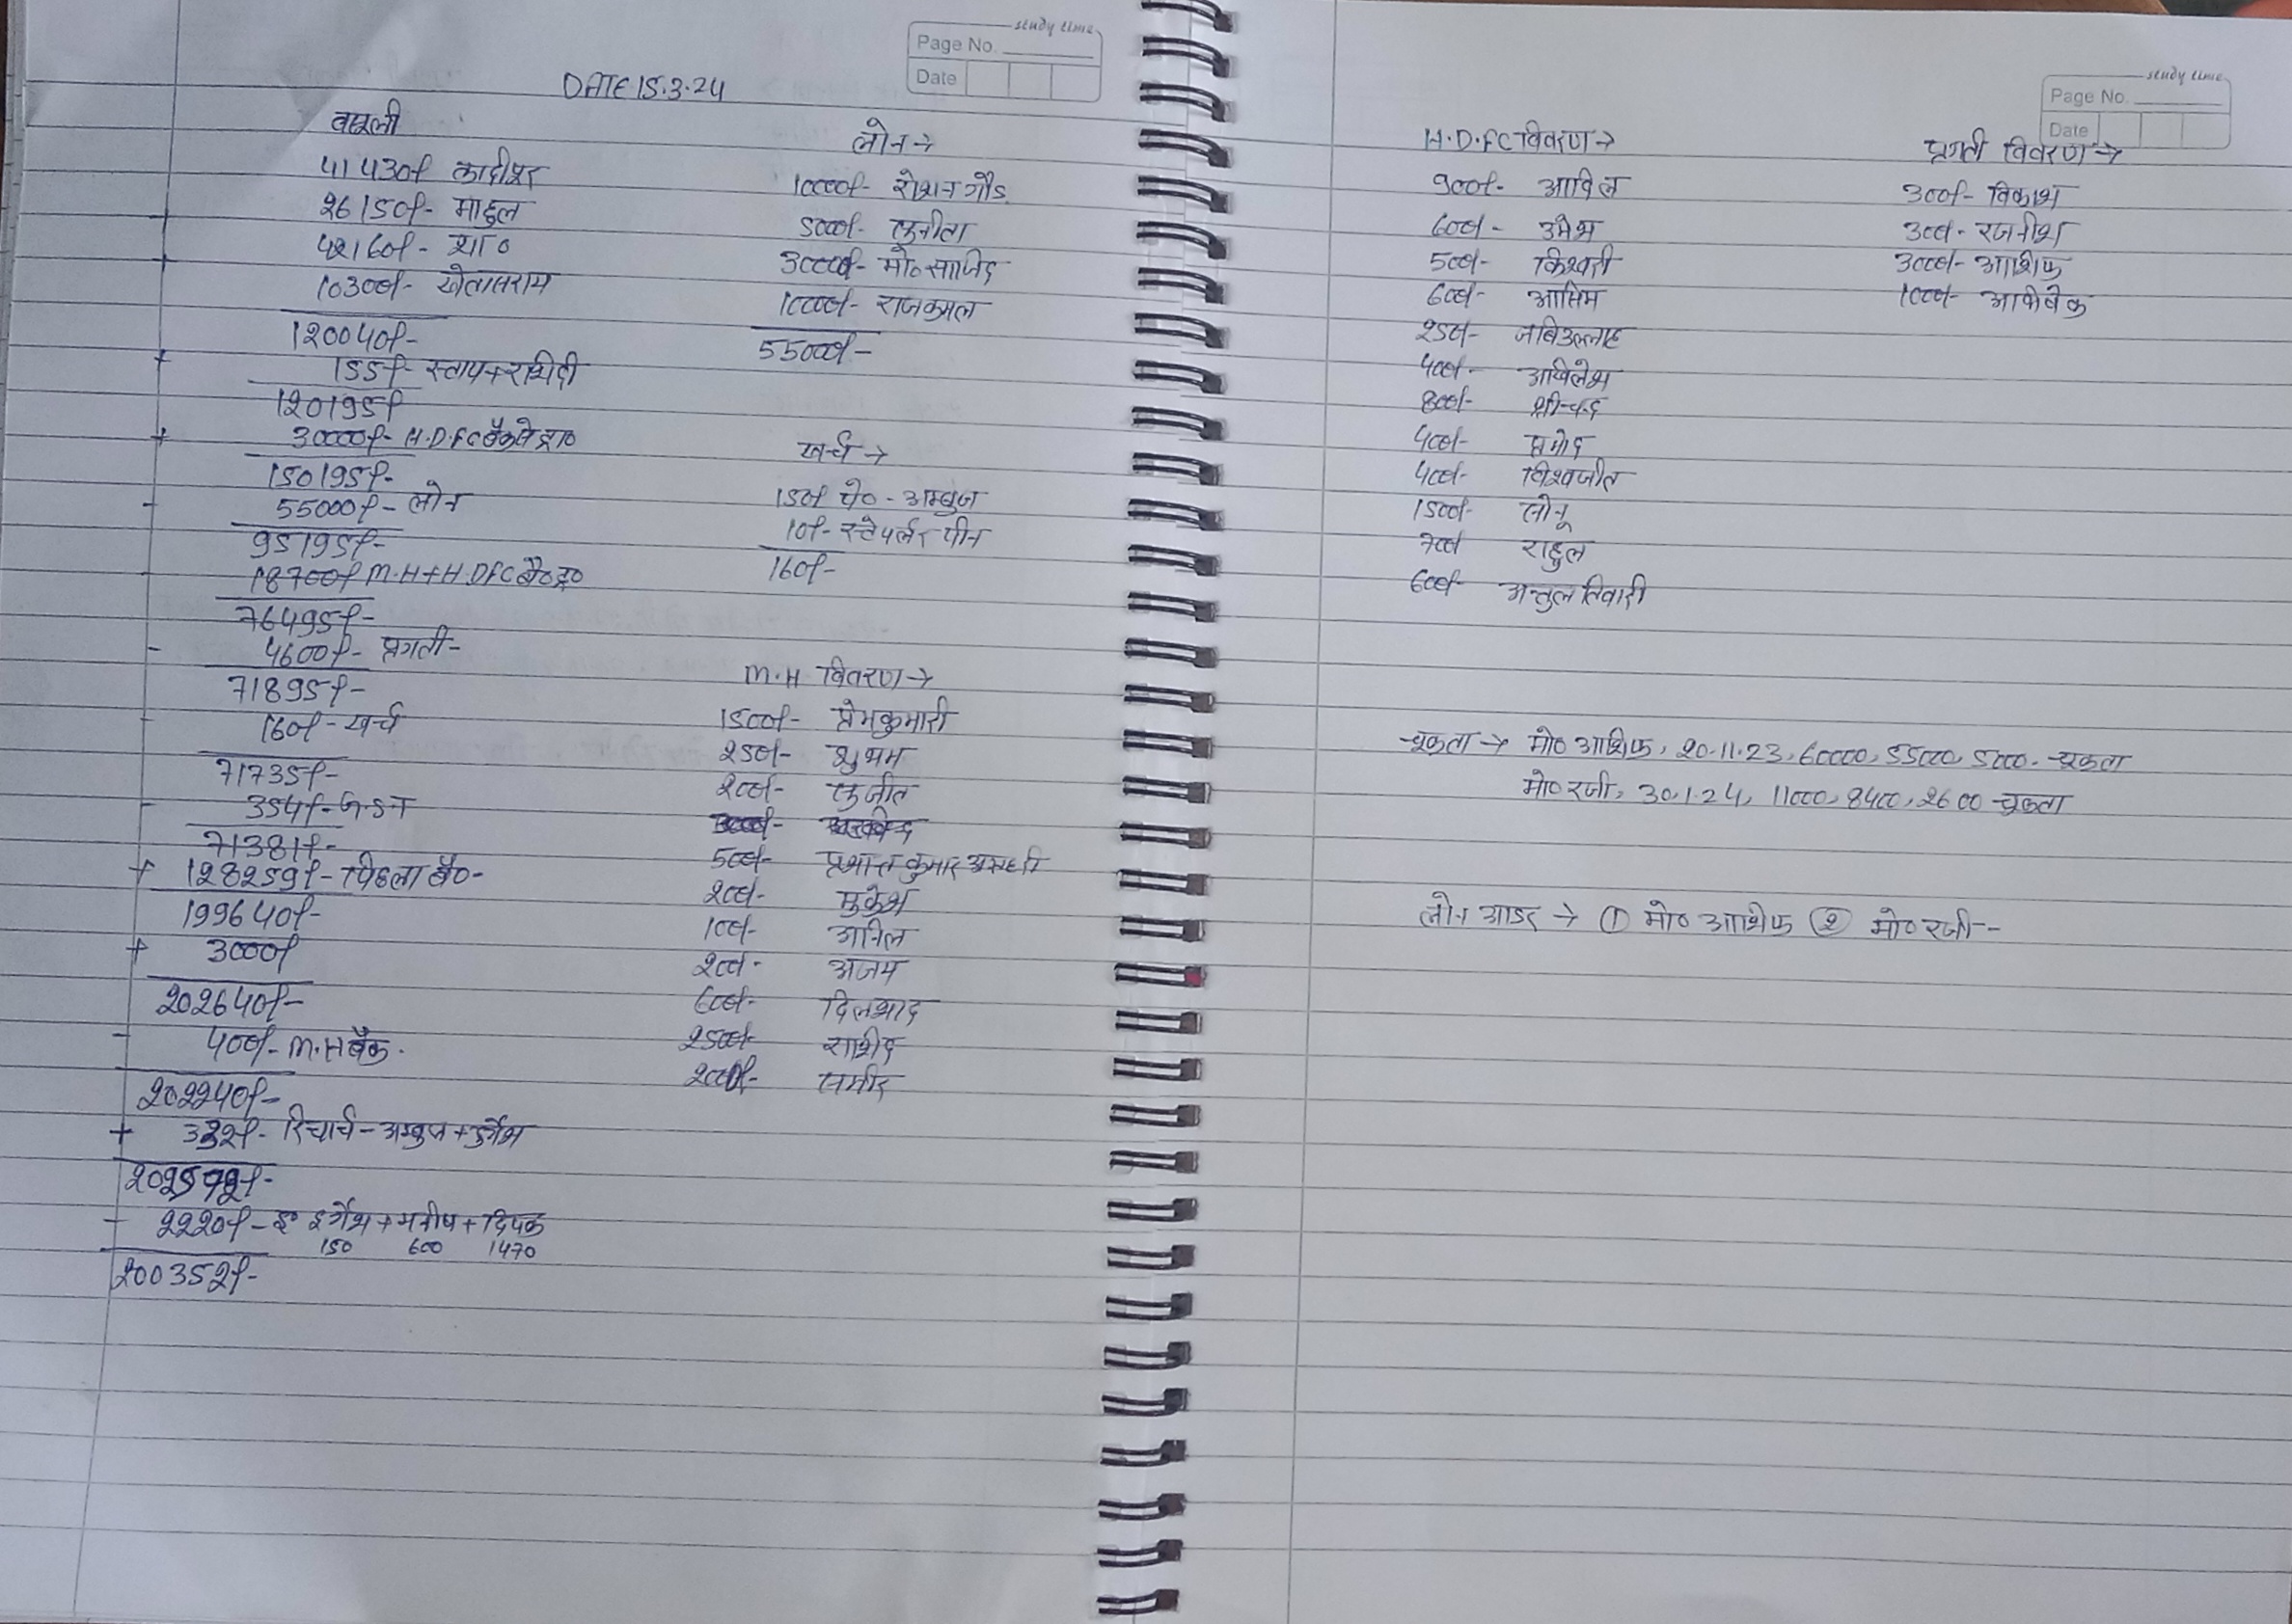 study time
Page No.
Date
DATE 15.3.24
वसूली
41430/- कादीपुर
26150/- माहुल
+ 42160/- शा०
+ 10300/- खेतासराय
120040/-
+ 155/- स्टाम्प+रसिदी
120195/-
+ 30000/- H.D.FC बैंक से प्रा०
150195/-
- 55000/- लोन
95195/-
18700/- M.H+H.DFC बै०
76495/-
- 4600/- प्रगती-
71895/-
- 160/- खर्च
71735/-
- 354/- G.S.T
71381/-
+ 128259/- पिछला बै०-
199640/-
+ 3000/-
202640/-
- 400/- M.H बैंक.
202240/-
+ 332/- रिचार्ज - अम्बुज + दुर्गेश
202572/-
- 2220/- दुर्गेश + मनीष + दिपक
150 600 1470
200352/-
लोन →
10000/- रोशन गौड
5000/- सुनीता
30000/- मो० साजिद
10000/- राजकमल
55000/-
खर्च →
150/- पे० - अम्बुज
10/- स्टेपलर पीन
160/-
M.H विवरण →
1500/- प्रेमकुमारी
250/- शुभम
200/- सुजीत
500/- प्रशान्त कुमार
200/- मुकेश
100/- अनिल
200/- अजय
600/- दिलशाद
2500/- राशीद
2000/- समीर
study time
Page No.
Date
H.D.FC विवरण →
900/- आदिल
600/- उमेश
500/- किश्वरी
600/- आसिम
250/- जबिउल्लाह
400/- अखिलेश
800/- श्रीचन्द
400/- प्रमोद
400/- विश्वजीत
1500/- सोनू
700/- राहुल
600/- अतुल तिवारी
प्रगती विवरण →
300/- विकाश
300/- रजनीश
3000/- आशिफ
1000/- अभिषेक
चूकता → मो० आशिफ, 20.11.23, 60000, 55000, 5000. चूकता
मो० रजी, 30.1.24, 11000, 8400, 2600 चूकता
लोन आडर → ① मो० आशिफ ② मो० रजी-